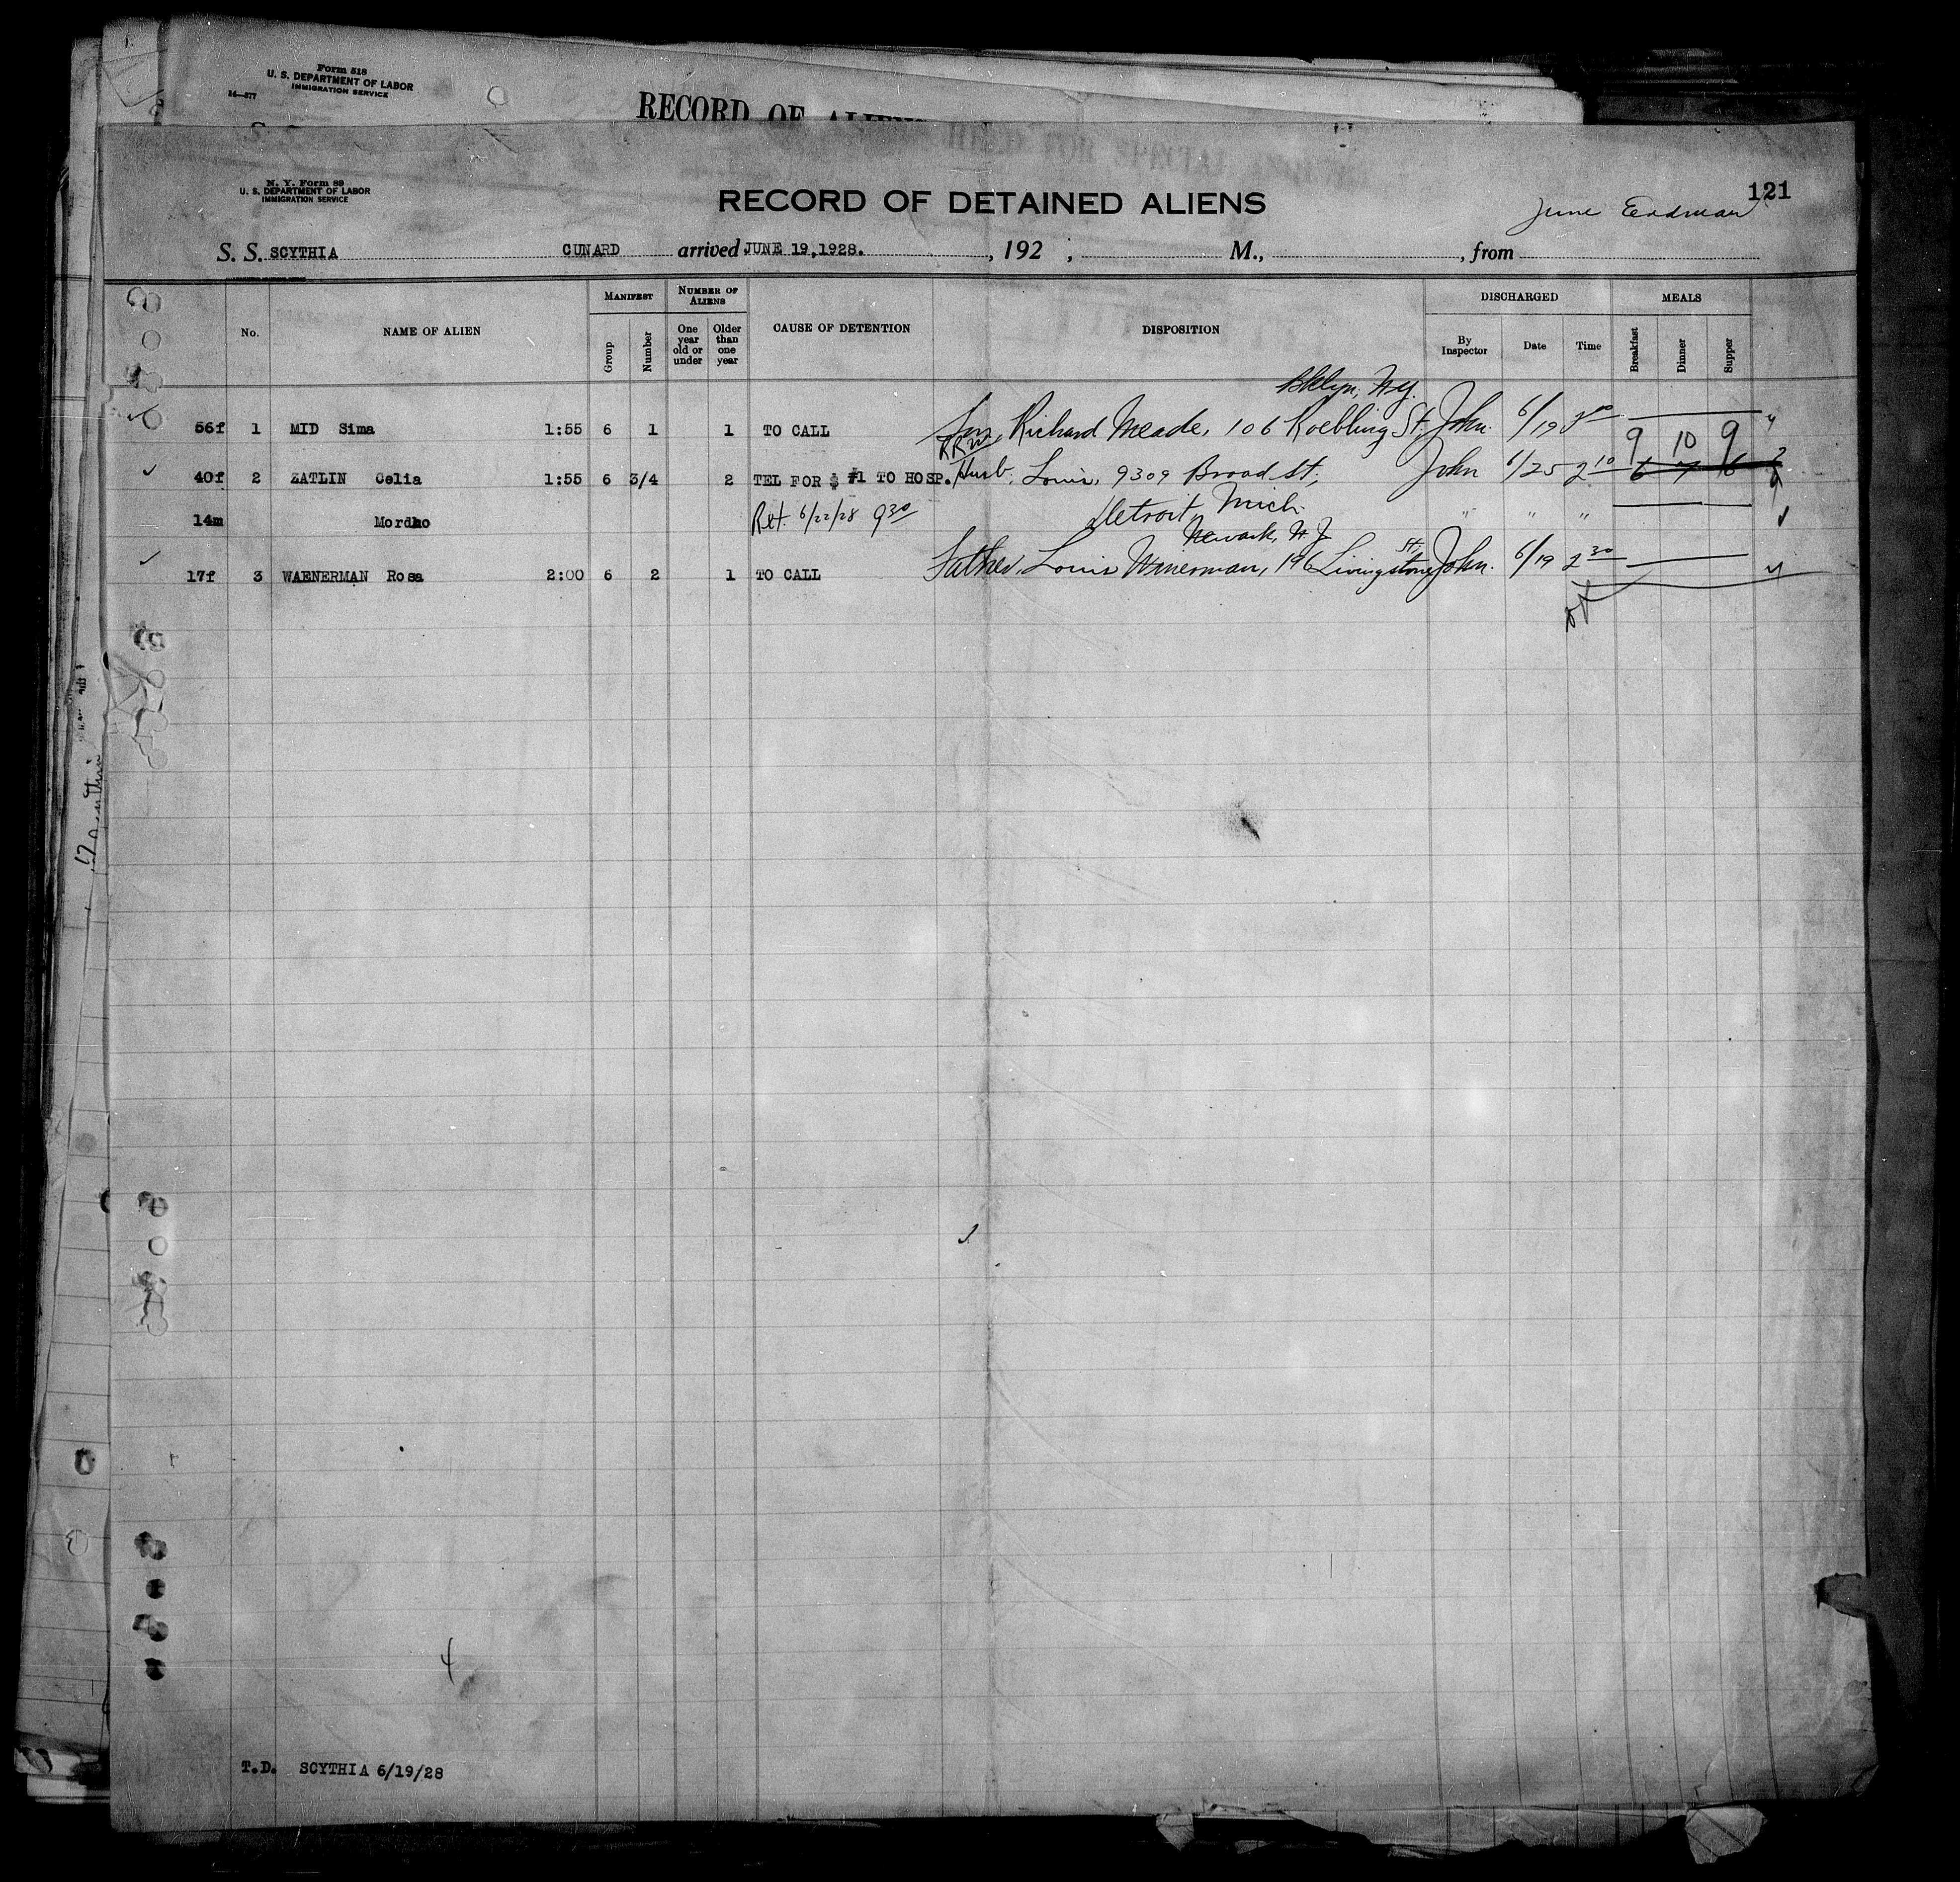 Form 518
U. S. DEPARTMENT OF LABOR
IMMIGRATION SERVICE
14—577
RECORD OF ALIENS
HELD FOR SPECIAL INQUIRY
N. Y. Form 89
U. S. DEPARTMENT OF LABOR
IMMIGRATION SERVICE
RECORD OF DETAINED ALIENS
121
June Erdman
S. S. SCYTHIA CUNARD arrived JUNE 19,1928. , 192 , M., , from
No. NAME OF ALIEN MANIFEST Group Number NUMBER OF ALIENS One year old or under Older than one year CAUSE OF DETENTION DISPOSITION DISCHARGED By Inspector Date Time MEALS Breakfast Dinner Supper
Bklyn, N.Y.
56f 1 MID Sima 1:55 6 1 1 TO CALL Son, Richard Meade, 106 Roebling St. John. 6/19
9 10 9
40f 2 ZATLIN Celia 1:55 6 3/4 2 TEL FOR $ #1 TO HOSP. Husb. Louis, 9309 Broad St, John 6/25 2 10 6 7 6
14m Mordko Ret. 6/22/28 9 30 Detroit, Mich. " " "
Newark, N.J.
17f 3 WAENERMAN Rosa 2:00 6 2 1 TO CALL Father, Louis Winerman, 196 Livingstone St, John. 6/19 2 30
4
T.D. SCYTHIA 6/19/28